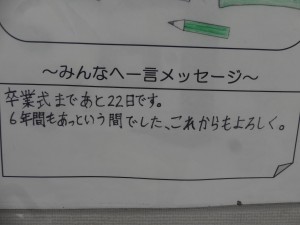 〜みんなへ一言メッセージ〜
卒業式まであと22日です。
6年間もあっという間でした、これからもよろしく。